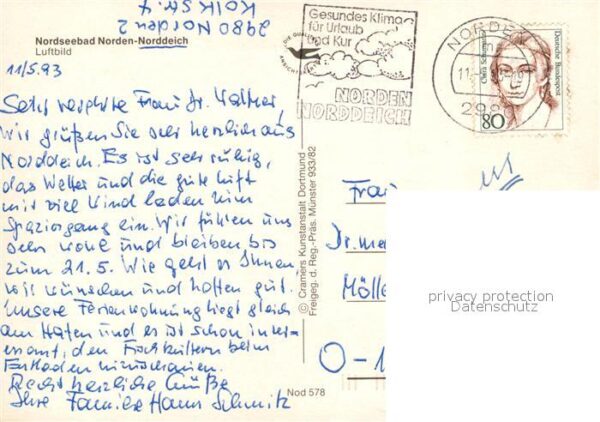 2980 NORDEN 2
Nordseebad Norden-Norddeich
Luftbild
11/5.93
Sehr verehrte Frau Dr.
wir grüßen Sie sehr herzlich aus
Norddeich. Es ist sehr ruhig,
das Wetter und die gute Luft
mit viel Wind laden zum
Spaziergang ein. Wir fühlen uns
sehr wohl und bleiben bis
zum 21.5. Wie geht es Ihnen,
wir wünschen und hoffen gut.
Unsere Ferienwohnung liegt gleich
am Hafen und es ist schon inter-
essant, den Fischkuttern beim
Entladen zuzuschauen.
Recht herzliche Grüße
Ihre Familie Hans Schmitz
Nod 578
© Cramers Kunstanstalt Dortmund
Freigeg. d. Reg.-Präs. Münster 933/82
Gesundes Klima
für Urlaub
und Kur
NORDEN
NORDDEICH
NORDEN
11.
2980
Clara Schumann
Deutsche Bundespost
80
Frau
Dr. me
Mölle
O-1
privacy protection
Datenschutz